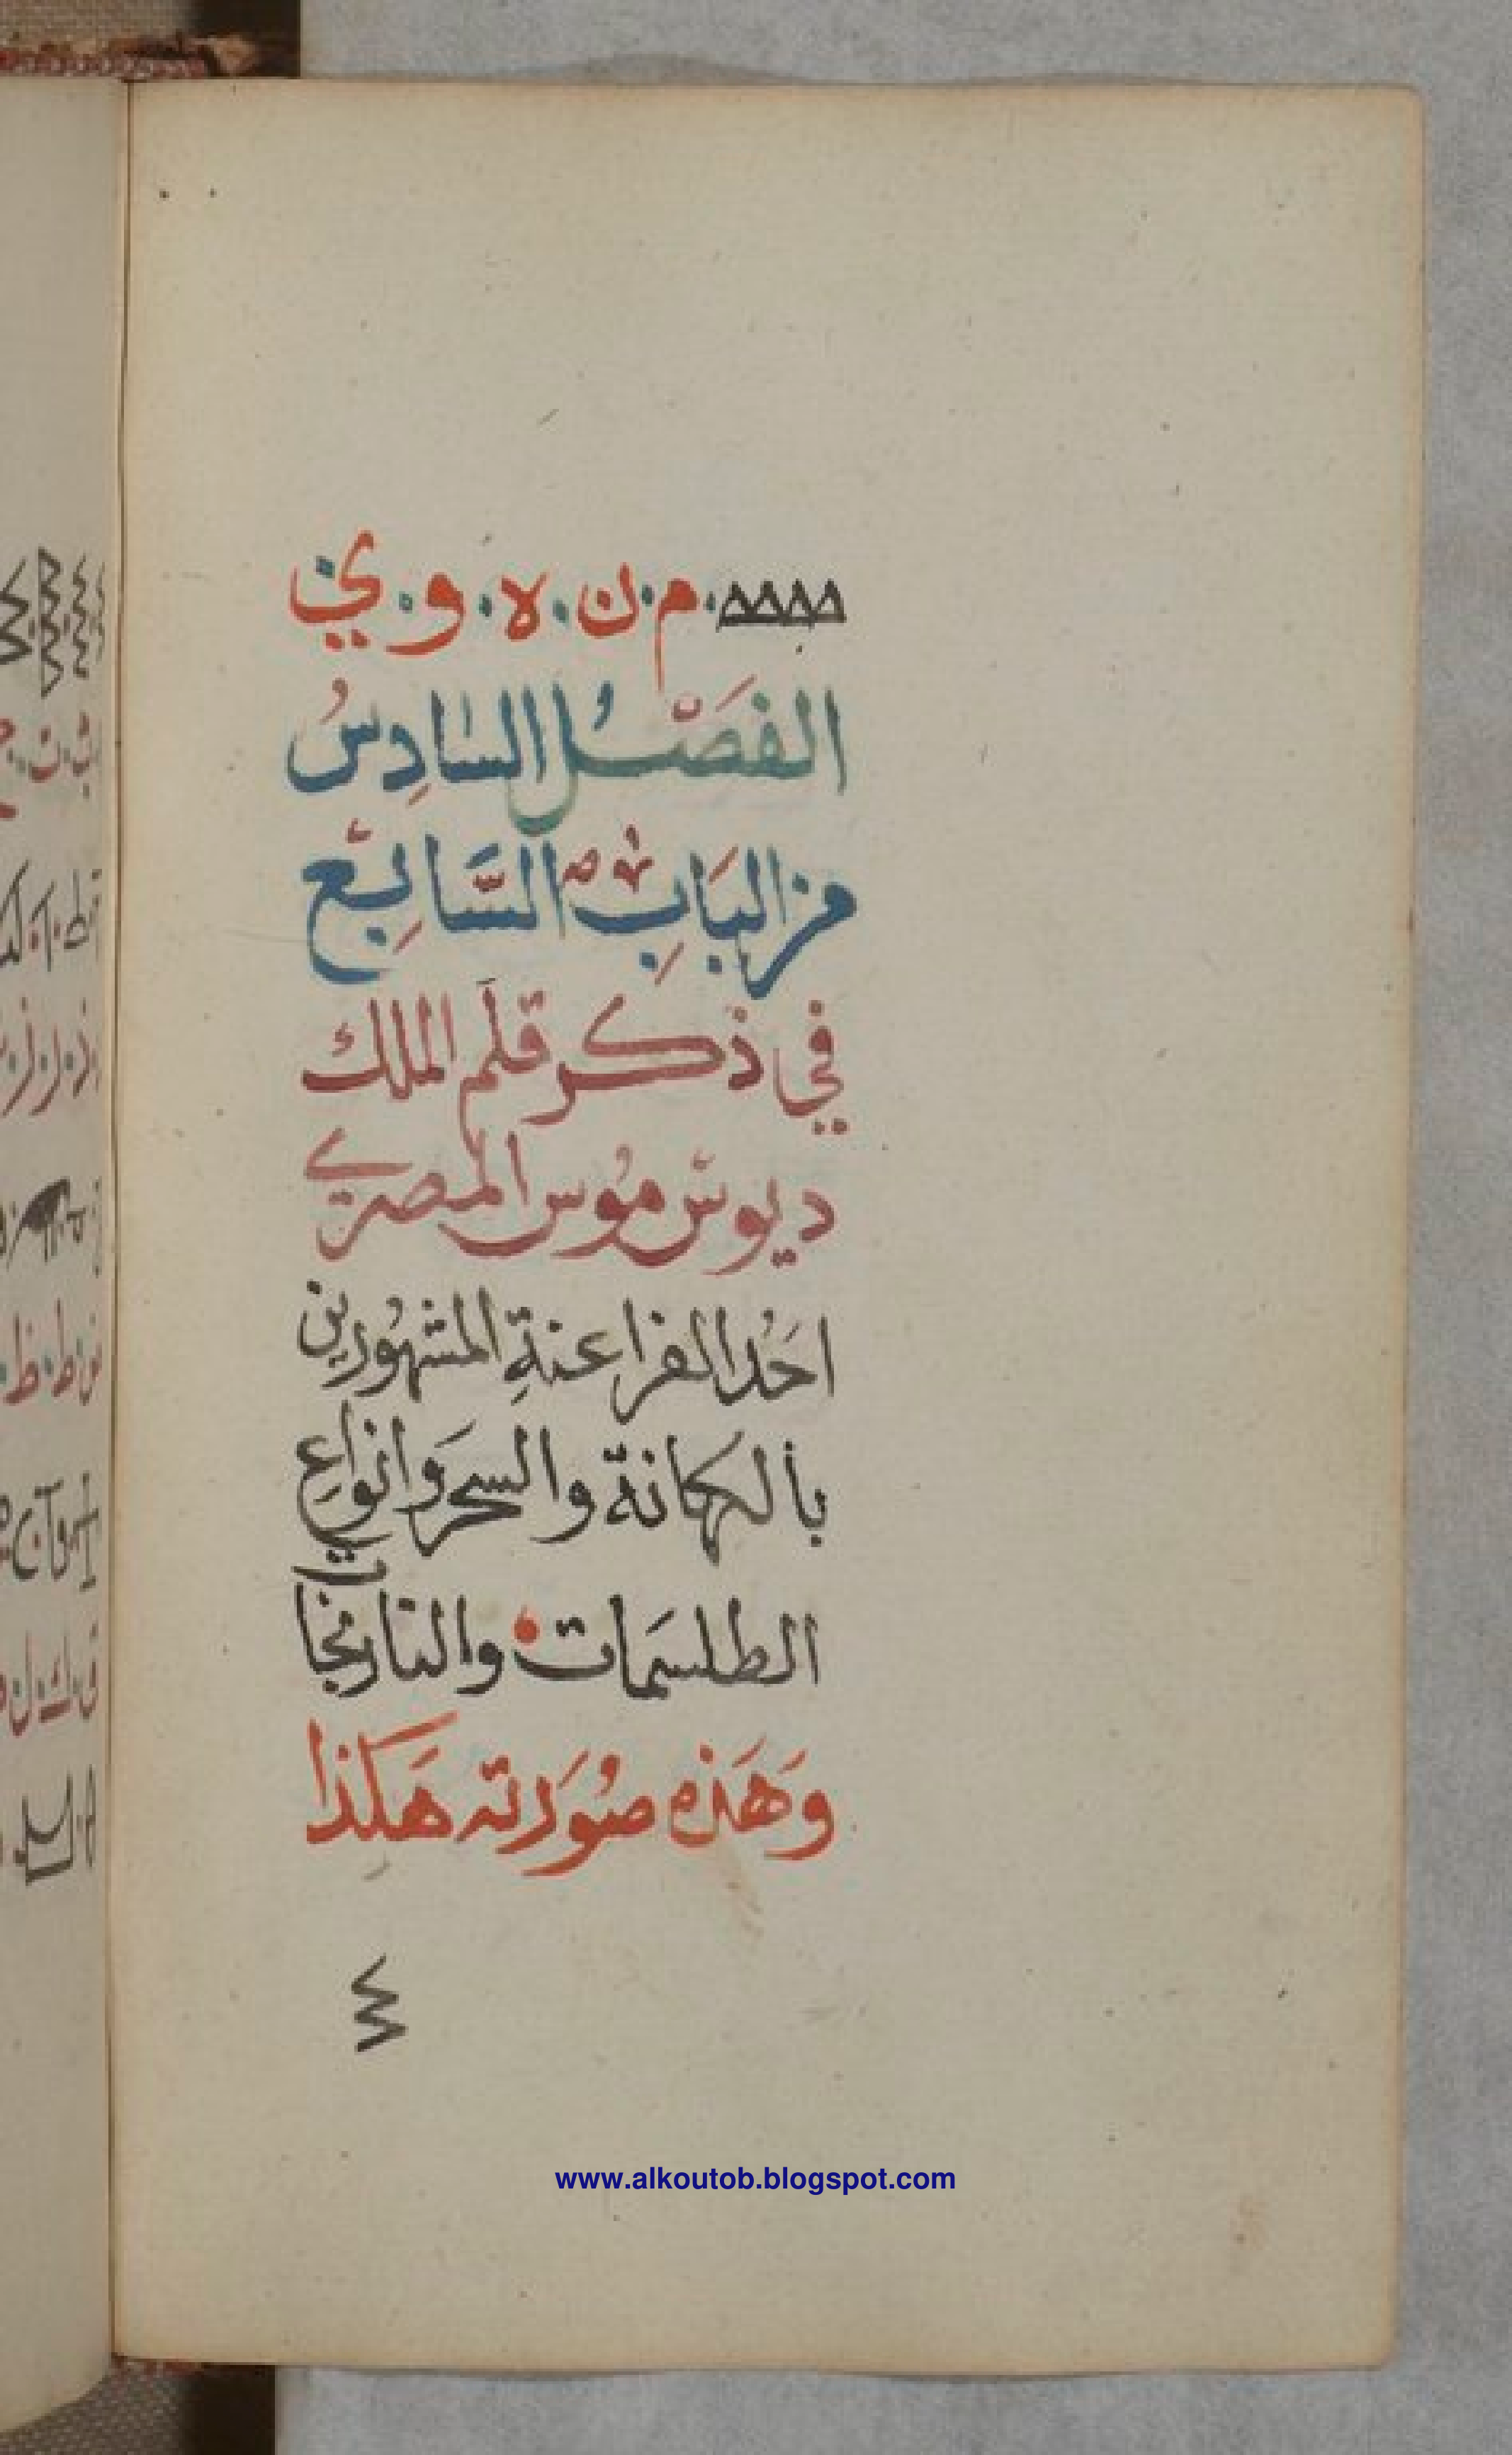 م . ن . ه . و . ي
الفَصْلُ السَادِسُ
من البَابِ السَّابِع
في ذكر قلَم الملك
ديوسْ مُوس المصري
احَدُ الفراعنةِ المشهُورين
بالكهانة والسحر وَانواعِ
الطلسمَات والنارنجات
وَهَذه صُورَته هَكَذا
www.alkoutob.blogspot.com